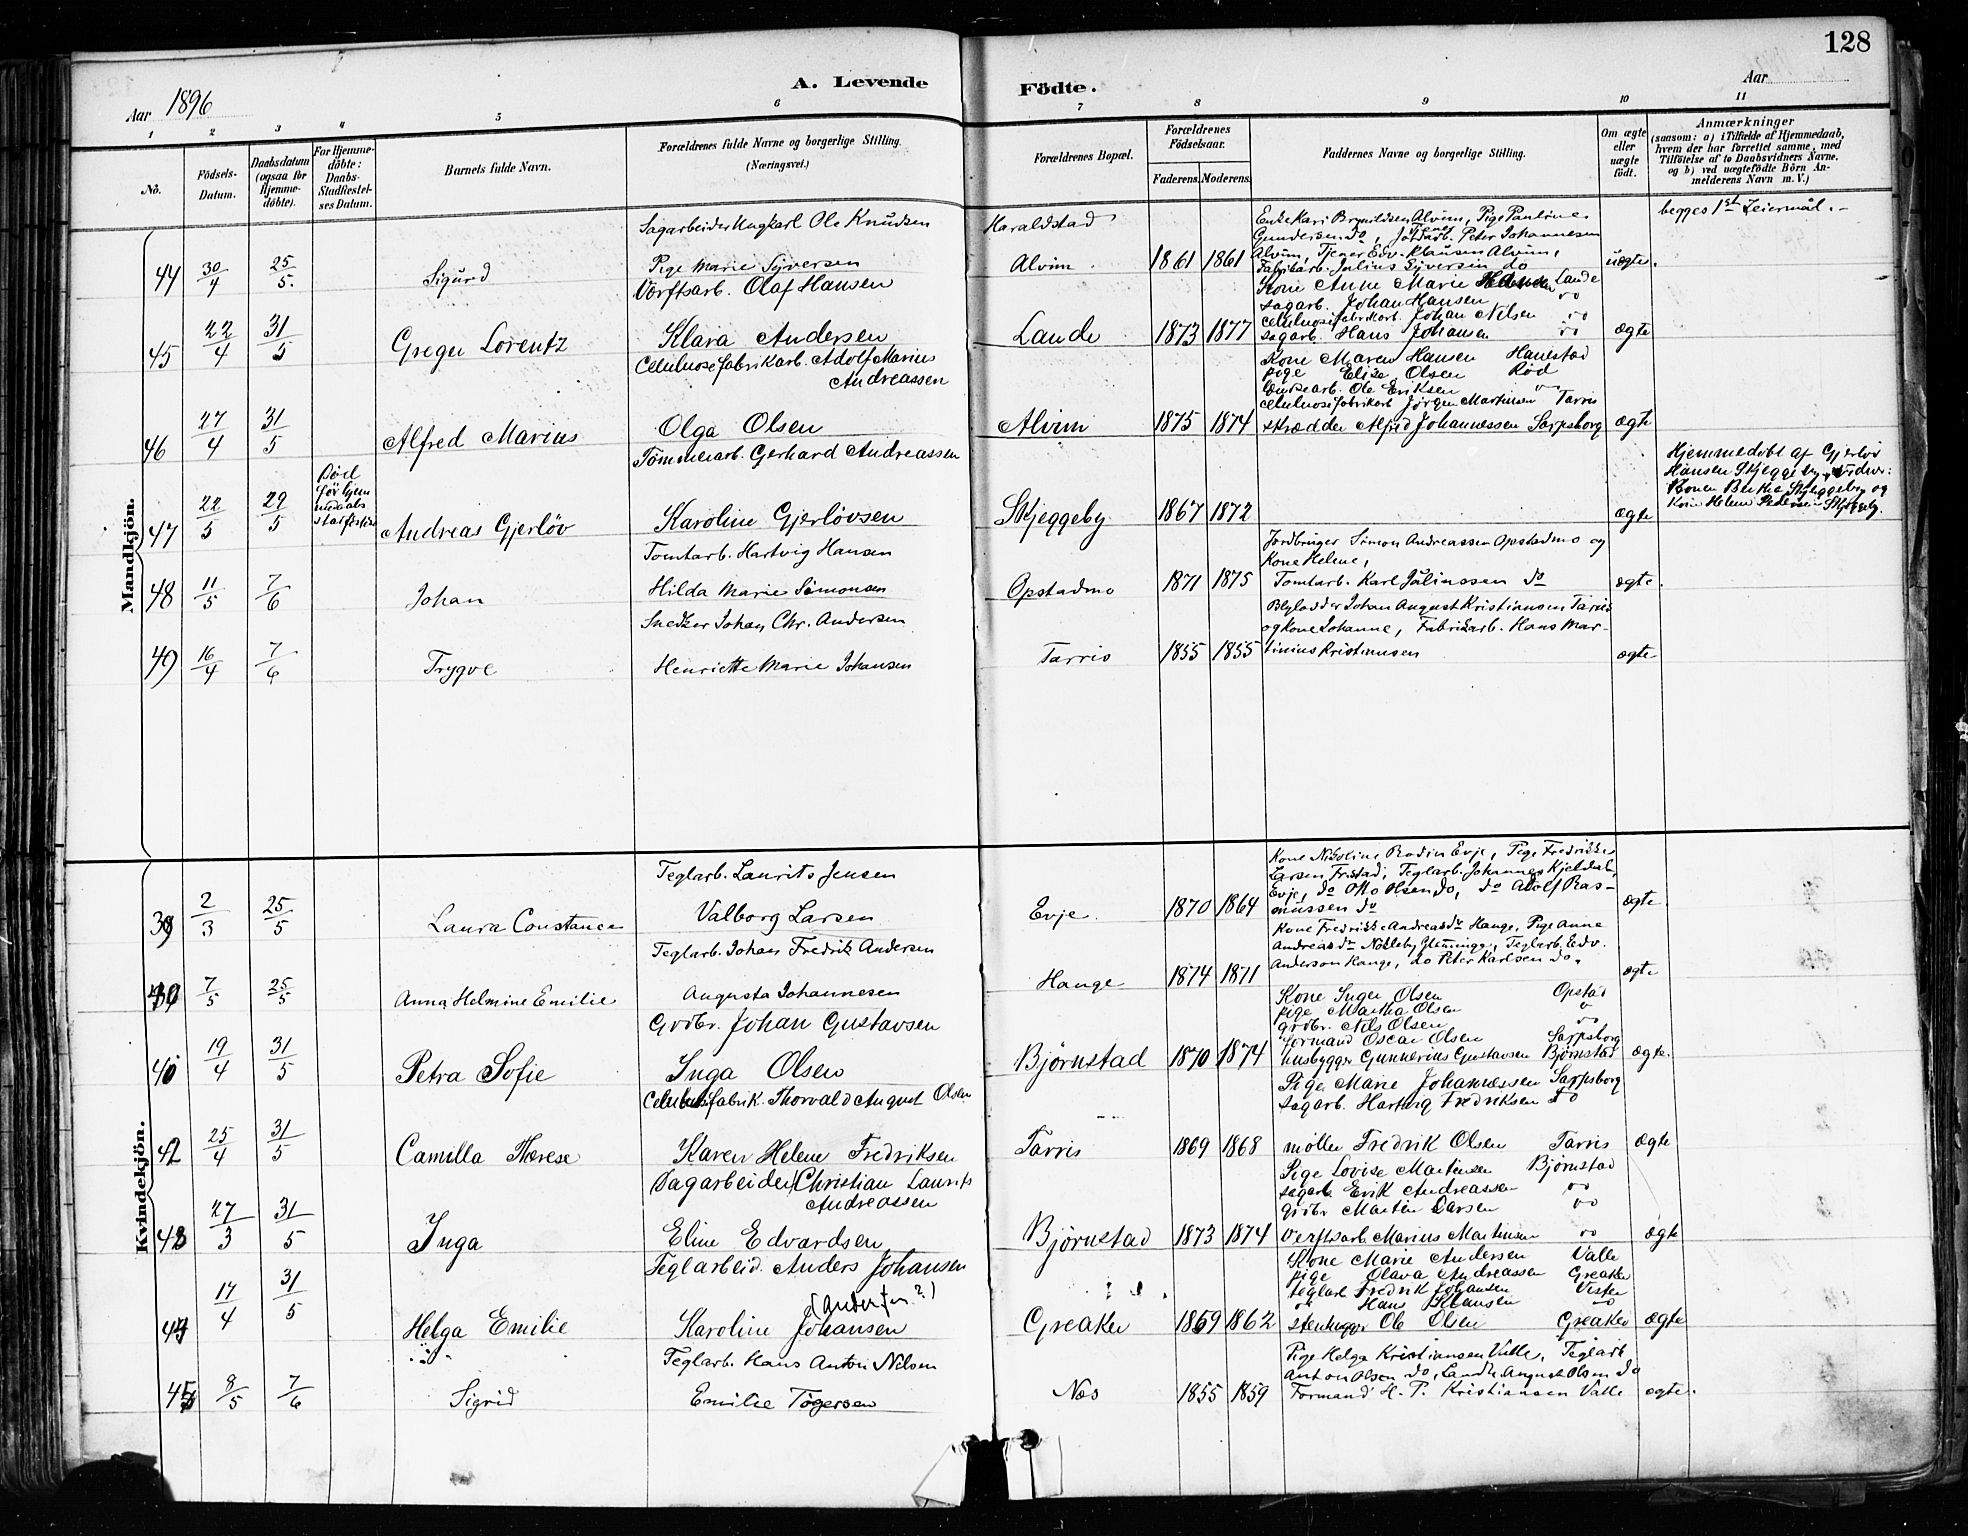 128
A. Levende Födte.
Aar 1896
Aar
1 2 3 4 5 6 7 8 9 10 11
No.
Födsels-Datum.
Daabsdatum (ogsaa for Hjemmedöbte).
For Hjemmedöbte: Daabs-Stadfestelses Datum.
Barnets fulde Navn.
Forældrenes fulde Navne og borgerlige Stilling. (Næringsvei.)
Forældrenes Bopæl.
Forældrenes Födselsaar.
Faderens. Moderens.
Faddernes Navne og borgerlige Stilling.
Om ægte eller uægte født.
Anmærkninger
(saasom: a) i Tilfælde af Hjemmedaab, hvem der har forrettet samme, med Tilföielse af to Daabsvidners Navne, og b) ved uægtefödte Börn Anmelderens Navn m. V.)
Mandkjön.
Sagarbeider Ungkarl Ole Knudsen
Haraldstad
Enke Kari Brynildsen Alvim, Pige Pauline
begges 1st Leiermål.
Gundersen do, Peter Johannesen
44 30/4 25/5 Sigurd
Pige Marie Syversen
Alvim 1861 1861
Alvim, Tjener Edv. Klausen Alvim,
uægte.
Fabrikarb. Julius Syversen do
Værftsarb. Olaf Hansen
Kone Anne Marie Lande
sagarb. Johan Hansen do
Celulosefabrikarb. Johan Nilsen do
45 22/4 31/5 Greger Lorentz
Klara Andersen
Lande 1873 1877
sagarb. Hans Johansen do
ægte
Celulosefabrikarb. Adolf Marius
Andreassen
Kone Maren Hansen Hanestad
pige Elise Olsen Rød
Ole Eriksen do
Celulosefabrikarb Jörgen Martinsen Tarris
46 27/4 31/5 Alfred Marius
Olga Olsen
Alvim 1875 1874
skrædder Alfred Johannessen Sarpsborg
ægte
Tömmerarb. Gerhard Andreassen
Hjemmedøbt af Gjerløv
Hansen Skjeggeby, Vidner:
Konen Skjeggeby og
Kone Helene Pedersen Skjeggeby.
47 22/5 29/5
Död før
Andreas Gjerløv
Karoline Gjerløvsen
Skjeggeby 1867 1872
ægte
Tomtarb. Hartvig Hansen
Jordbruger Simon Andreassen Opstadmo og
Kone Helene,
48 11/5 7/6 Johan
Hilda Marie Simonsen
Opstadmo 1871 1875
Tomtarb. Karl Julinssen do
ægte.
Snedker Johan Chr. Andersen
Johan August Kristiansen Tarris
og Kone Johanne, Fabrikarb. Hans Mar-
49 16/4 7/6 Trygve
Henriette Marie Johansen
Tarris 1855 1855
tinius Kristiansen
ægte
Kvindekjön.
Teglarb. Laurits Jensen
Kone Nikoline Bodin Evje, Pige Fredrikke
Larsen Fristad, Teglarb. Johannes Kjeldal,
Evje, do Otto Olsen do, do Adolf Ras-
39 2/3 25/5 Laura Constance
Valborg Larsen
Evje 1870 1864
mussen do
ægte.
Teglarb. Johan Fredrik Andersen
Kone Fredrikke Andreasdr Hauge, Pige Anne
Andreasdr Nokleby Glemminge, Teglarb. Edv.
Anderson Hauge, do Peter Karlsen do.
40 7/5 25/5 Anna Helmine Emilie
Augusta Johannesen
Hauge 1874 1871
ægte
Grdbr. Johan Gustavsen
Kone Inger Olsen Opstad
pige Martha Olsen do
grdbr. Nils Olsen do
formand Oscar Olsen Sarpsborg
19/4 31/5 Petra Sofie
Inga Olsen
Björnstad 1870 1874
husbygger Gunnerius Gustavsen Björnstad
ægte.
Thorvald August Olsen
Pige Marie Johannessen Sarpsborg
sagarb. Hartvig Fredriksen do
42 25/4 31/5 Camilla Therese
Karen Helene Fredriksen
Tarris 1869 1868
möller Fredrik Olsen Tarris
ægte
Sagarbeider Christian Laurits
Andreassen
Pige Lovise Martinsen Björnstad
sagarb Erik Andreassen do
grdbr Martin Larsen do
43 27/3 31/5 Inga
Eline Edvardsen
Björnstad 1873 1874
Verftsarb Marius Martinsen do
ægte
Teglarbeid. Anders Johansen
(Andersen?)
Kone Marie Andersen Valle
pige Olava Andreassen Greaker
teglarb Fredrik Johansen Visten
Hans Klausen do
44 17/4 31/5 Helga Emilie
Karoline Johansen
Greaker 1869 1862
stenhugger Ole Olsen Greaker
ægte
Teglarb. Hans Anton Nilsen
Pige Helga Kristiansen Valle, Teglarb
Anton Olsen do, Landh. August Olsen do
45 8/5 7/6 Sigrid
Emilie Tögersen
Næs 1855 1859
Formand H. P. Kristiansen Valle
ægte.